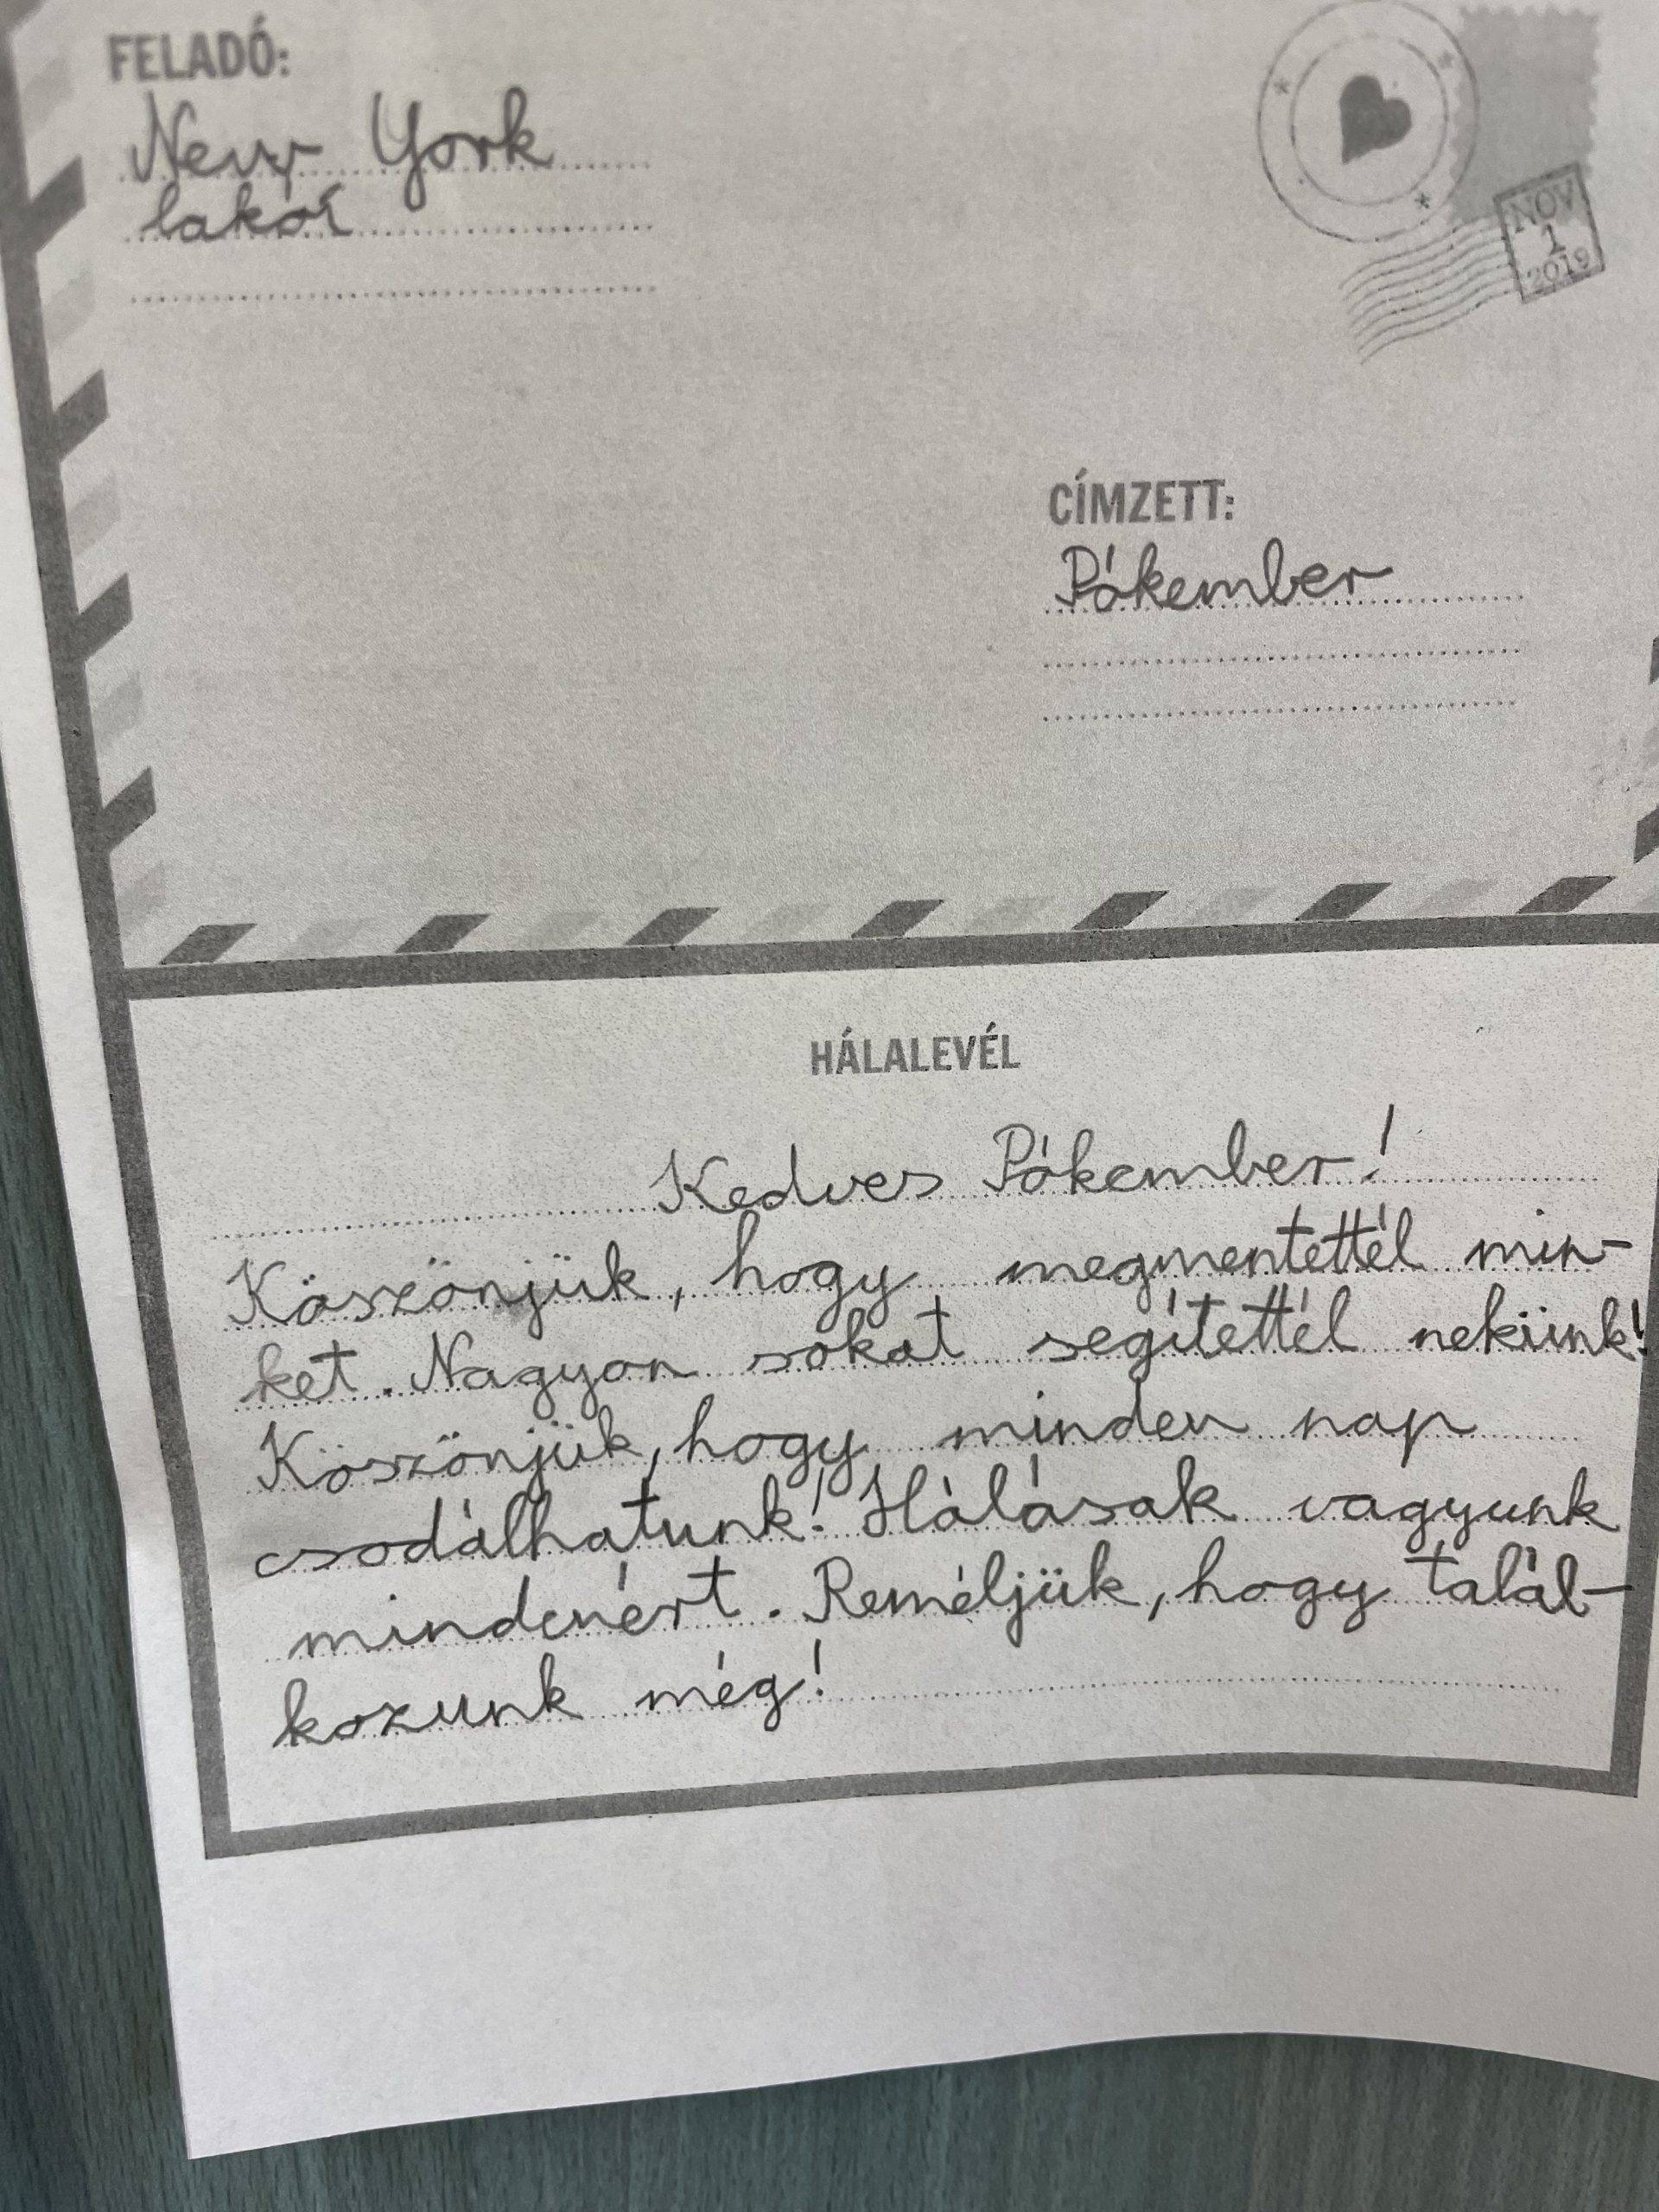 FELADÓ:
New York
lakói
NOV
1
2019
CÍMZETT:
Pókember
HÁLALEVÉL
Kedves Pókember!
Köszönjük, hogy megmentettél min-
ket. Nagyon sokat segítettél nekünk!
Köszönjük, hogy minden nap
csodálhatunk! Hálásak vagyunk
mindenért. Reméljük, hogy talál-
kozunk még!